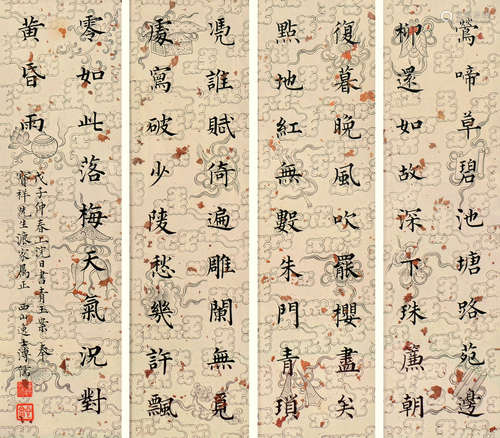 鶯啼草碧池塘路苑邊
柳還如故深下珠簾朝
復暮晚風吹罷櫻盡矣
點地紅無數朱門青瑣
凭誰賦倚遍雕闌無覓
處寫破少陵愁幾許飄
零如此落梅天氣況對
黃昏雨
戊子仲春上浣日書青玉案奉
寶祥先生濵家屬正 西山逸士溥儒